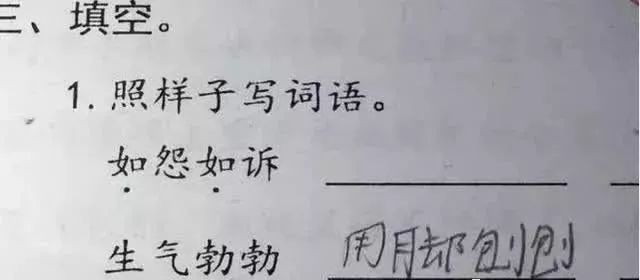 三、填空。
1. 照样子写词语。
如怨如诉
生气勃勃 用脚刨刨